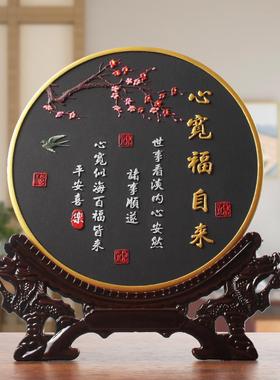 心宽福自来
世事看淡内心安然
諸事順遂
心宽似海百福皆来
平安喜樂